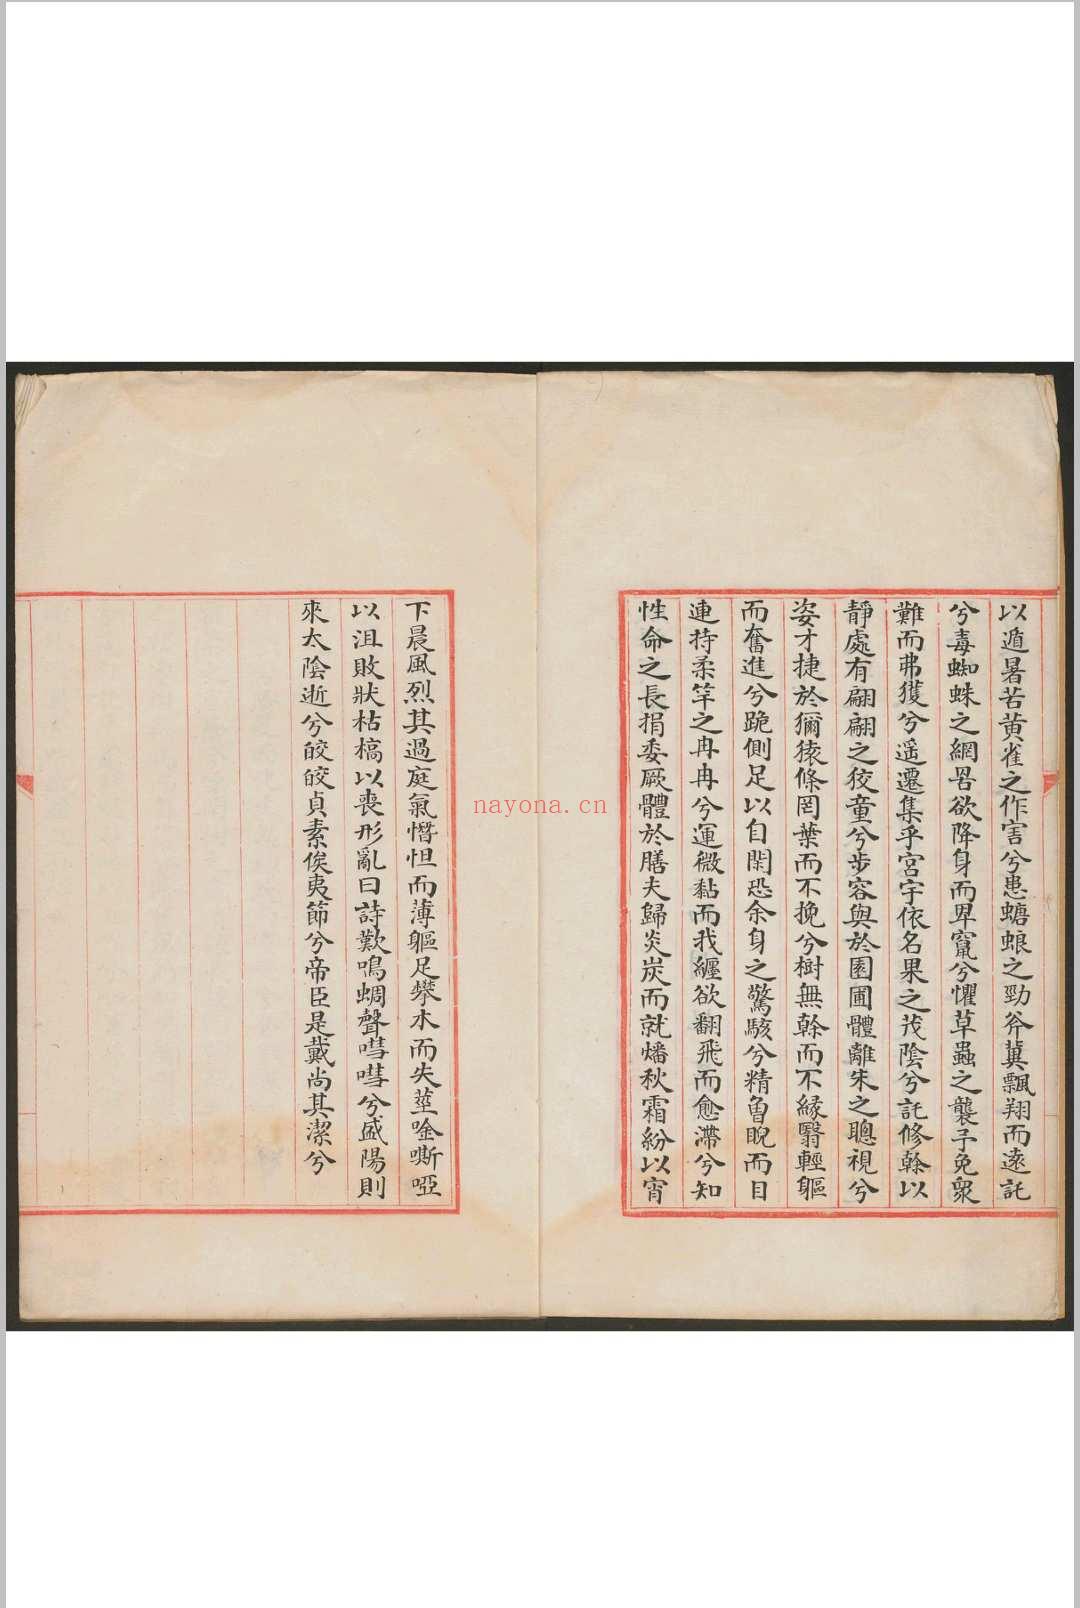 以遁暑苦黄雀之作害兮患螗蜋之勁斧冀飄翔而遠託
兮毒蜘蛛之網罟欲降身而卑竄兮懼草蟲之襲予免衆
難而弗獲兮遥遷集乎宮宇依名果之茂陰兮託修榦以
靜處有翩翩之狡童兮步容與於園圃體離朱之聰視兮
姿才捷於獼猿條罔葉而不挽兮樹無榦而不緣翳輕軀
而奮進兮跪側足以自閑恐余身之驚駭兮精曾睨而目
連持柔竿之冉冉兮運微黏而我纏欲翻飛而愈滯兮知
性命之長捐委厥體於膳夫歸炎炭而就燔秋霜紛以宵
下晨風烈其過庭氣憯怛而薄軀足攀木而失莖唫嘶啞
以沮敗狀枯槁以喪形亂曰詩歎鳴蜩聲嘒嘒兮盛陽則
來太陰逝兮皎皎貞素侔夷節兮帝臣是戴尚其潔兮
nayona.cn